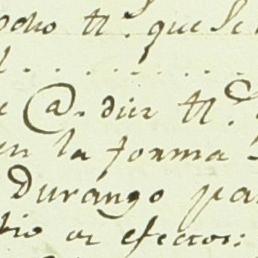 ocho tt.s que se
. . . . . . . .
@. diez tt.s
en la forma
Durango pa
efectos: